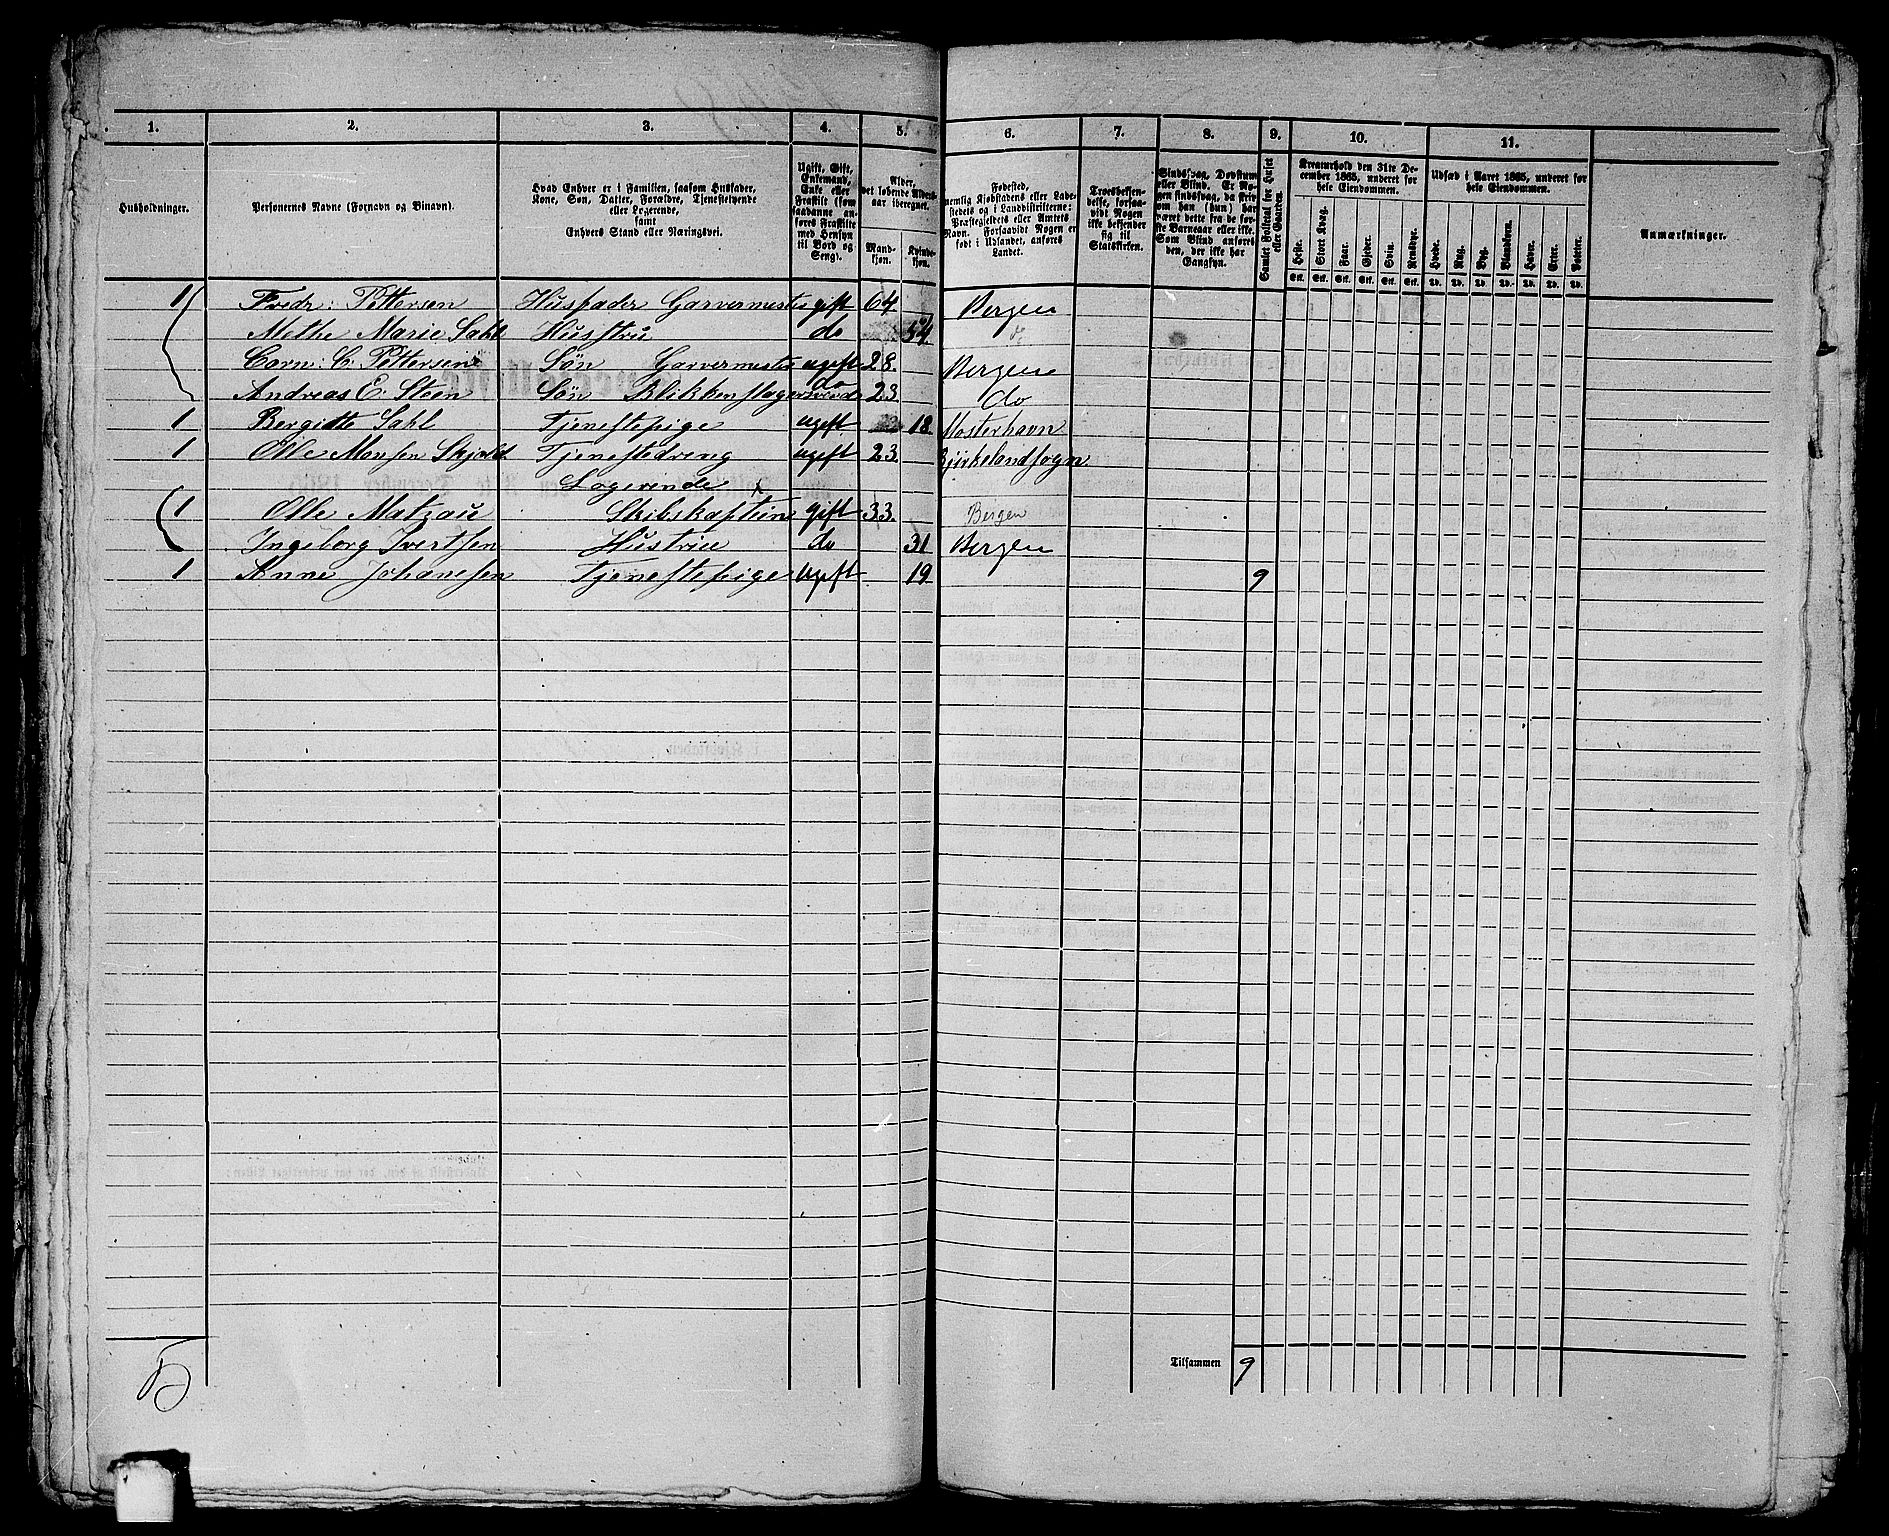 1. 2. 3. 4. 5. 6. 7. 8. 9. 10. 11.
Husholdninger.
Personernes Navne (Fornavn og Binavn).
Hvad Enhver er i Familien, saasom Husfader,
Kone, Søn, Datter, Forældre, Tjenestetyende
eller Logerende,
samt
Enhvers Stand eller Næringsvei.
Ugift, Gift,
Enkemand,
Enke eller
Fraskilt (som
saadanne an-
føres Fraskilte
med Hensyn
til Bord og
Seng).
Alder,
det løbende Alders-
aar iberegnet.
Mand-
kjøn.
Kvinde-
kjøn.
Fødested,
nemlig Kjøbstadens eller Lade-
stedets og i Landdistrikterne:
Præstegjeldets eller Amtets
Navn. Forsaavidt Nogen er
født i Udlandet, anføres
Landet.
Troesbekjen-
delse, forsaa-
vidt Nogen
ikke bekjender
sig til
Statskirken.
Sindssvag, Døvstum
eller Blind. Er No-
gen sindssvag, da skriv
om han (hun) har
været dette fra de før-
ste Barneaar eller ikke.
Som Blind anføres
den, der ikke har
Gangsyn.
Samlet Folketal for Huset
eller Gaarden.
Kreaturhold den 31te De-
cember 1865, underet for
hele Eiendommen.
Heste. Stort Kvæg. Faar. Gjeder. Svin. Rensdyr.
Stk. Stk. Stk. Stk. Stk. Stk.
Udsæd i Aaret 1865, underet for
hele Eiendommen.
Hvede. Rug. Byg. Blandkorn. Havre. Erter. Poteter.
Td. Td. Td. Td. Td. Td. Td.
Anmærkninger.
1 Fredr: Pettersen Husfader Garvermester gift 64 Bergen
Methe Marie Sahl Husstru do 54
Corn: C. Pettersen Søn Garvermester ugift 28. Bergen
Andreas E. Steen Søn Blikkenslagersvend do 23. do
1 Bergitte Sahl Tjenestepige ugift 18 Mosterhavn
1 Olle Monsen Skjold Tjenestedreng ugift 23. Bjirkelandsogn
Logerende
1 Olle Matzau Skibskaptein gift 33. Bergen
Ingeborg Ivertsen Hustrue do 31 Bergen
1 Anne Johanesen Tjenestepige ugift 19 9
Tilsammen 9
5